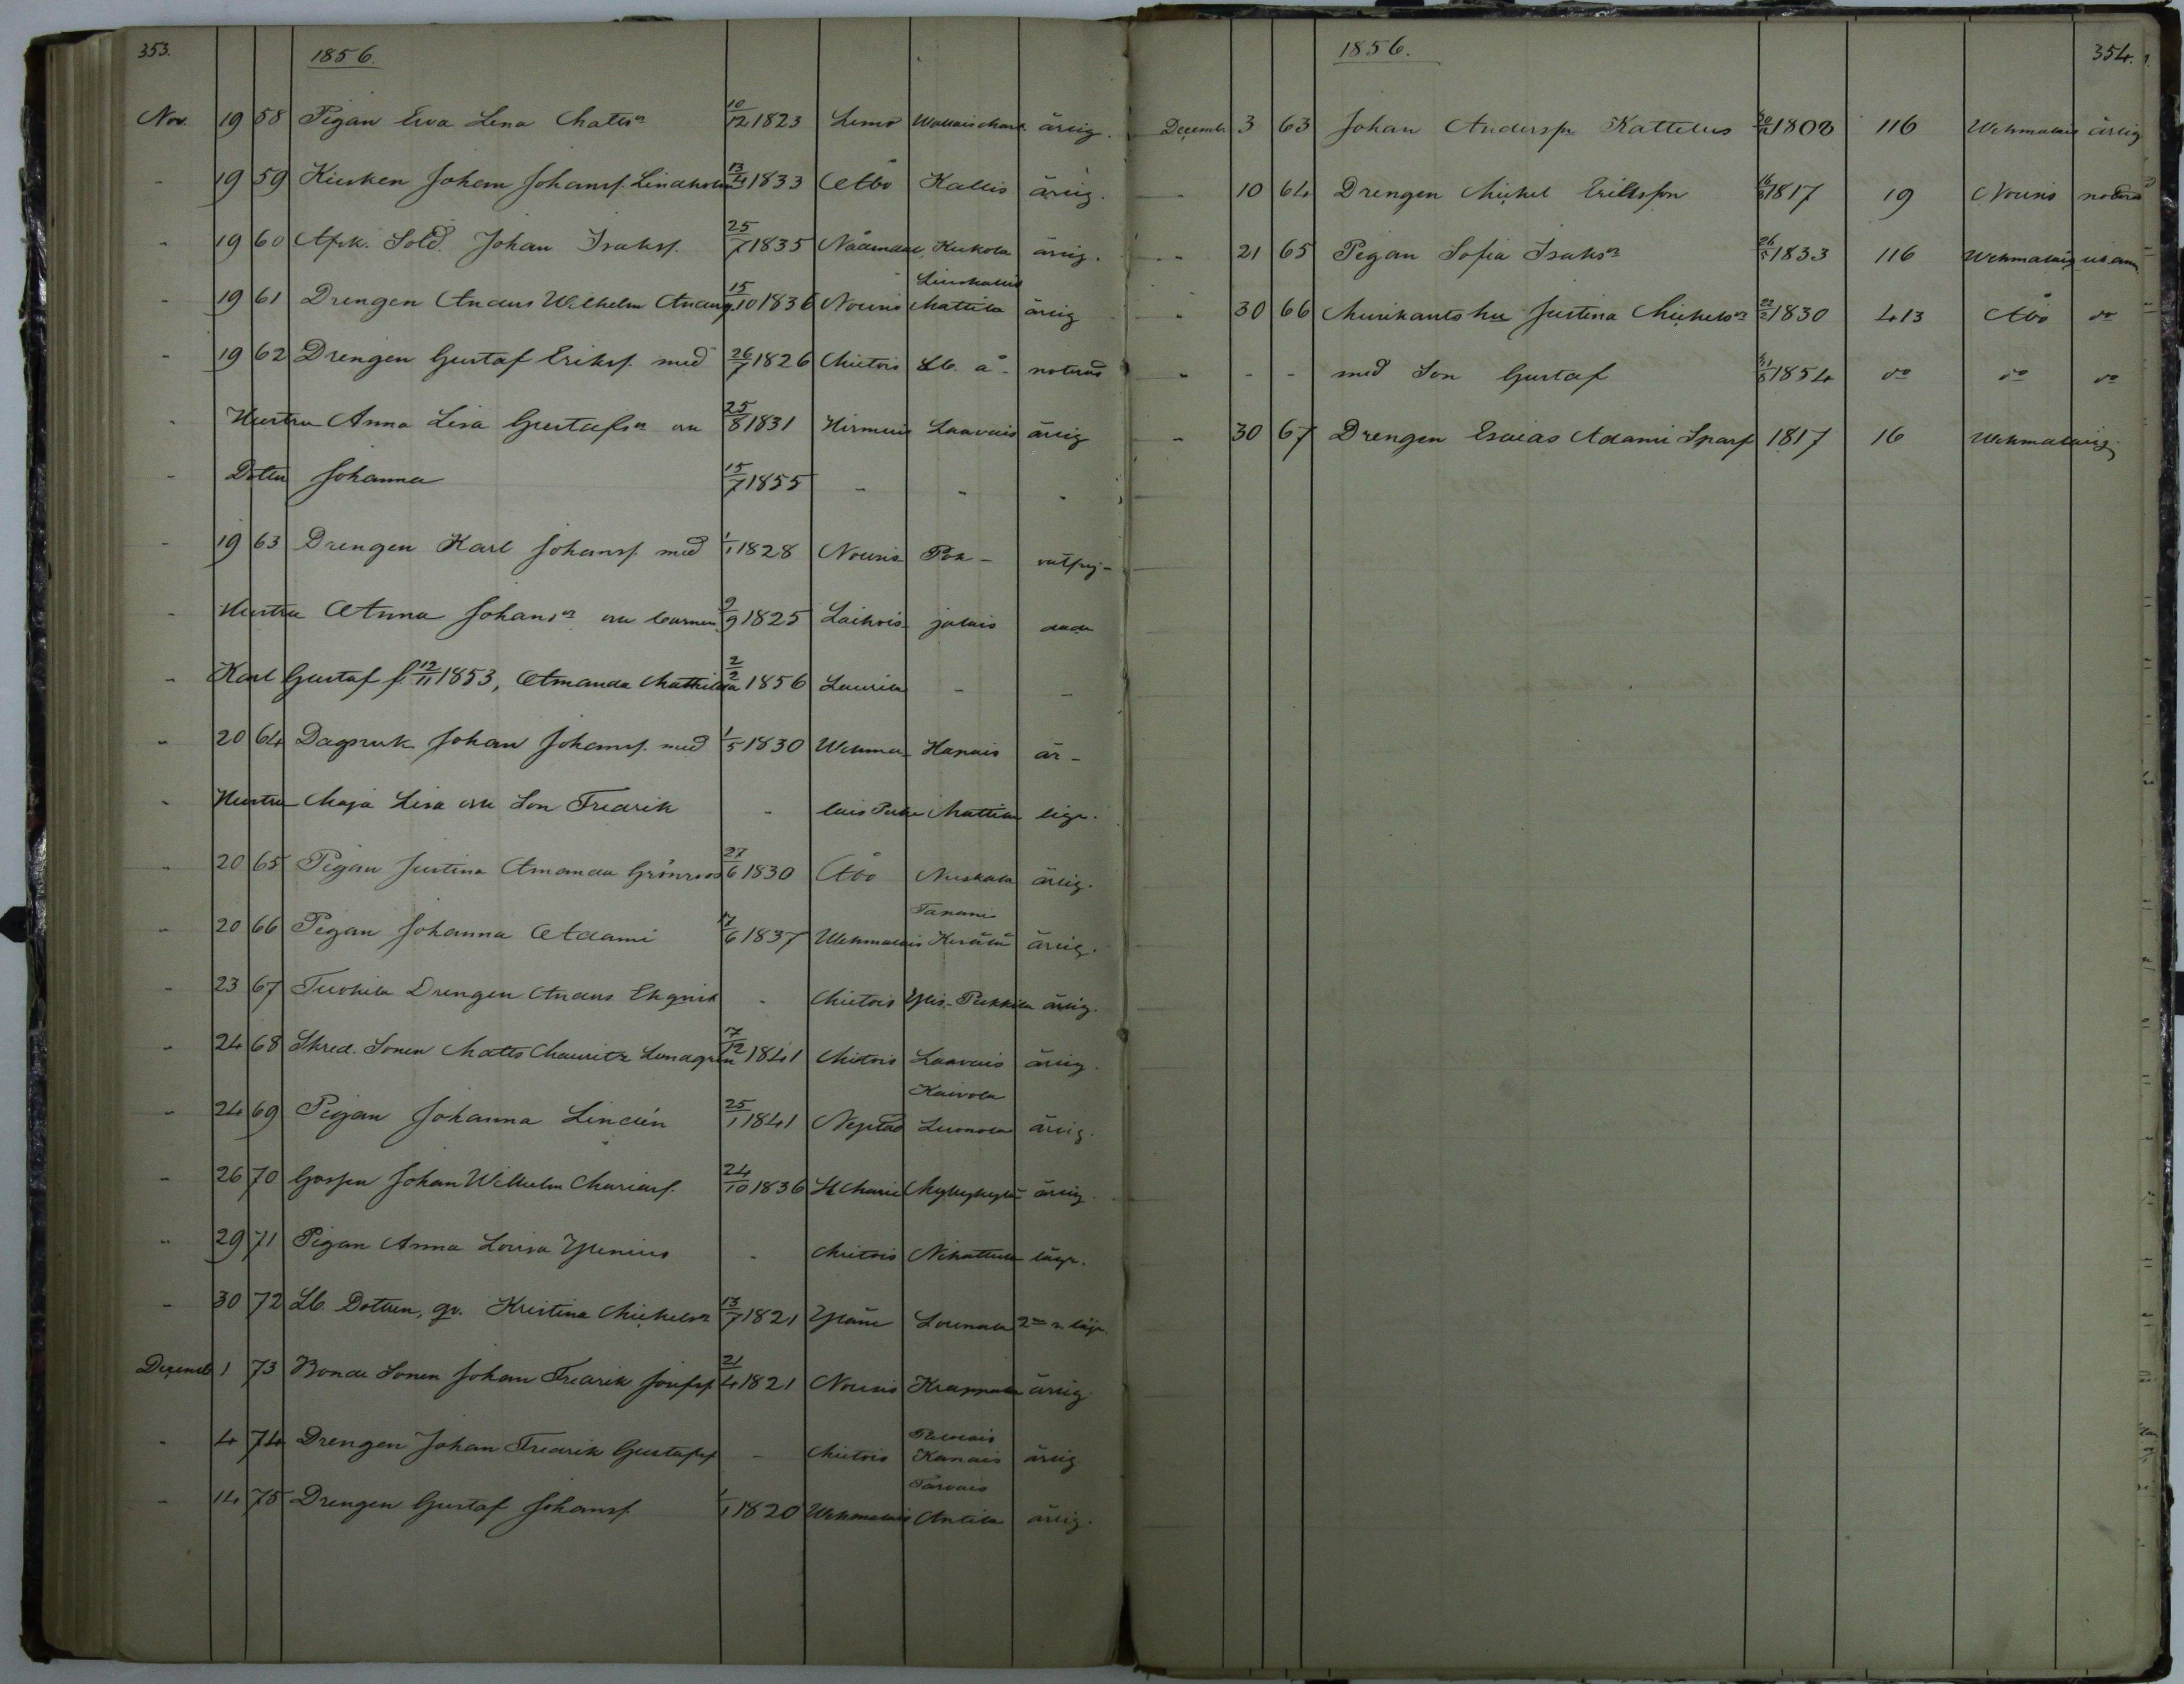 353.
1856.
Nov. 19 58 Pigan Eva Lena Matts dr 10/12 1823 Lemo ärlig.
- 19 59 Kusken Johan Johansf. Lindholm 13/4 1833 Åbo Kallis ärlig.
- 19 60 Afsk. Sold. Johan Isaksf. 25/7 1835 Nådendal, Kukola ärlig.
- 19 61 Drengen Anders Wilhelm Anders. 15/10 1836 Nousis Mattila ärlig
- 19 62 Drengen Gustaf Eriksf. med 26/7 1826 Mietois Lb. å - noterad
- Hustru Anna Lisa Gustafs dr och 25/8 1831 Hirmuis Laavais ärlig
- Dotter Johanna 15/7 1855 - - -
- 19 63 Drengen Karl Johansf. med 1/1 1828 Nousis Poh -
- Hustru Anna Johans dr och barnen 9/9 1825 Laihois jalais
- Karl Gustaf f. 12/11 1853, Amanda Mathilda 2/2 1856 - -
- 20 64 Johan Johansf. med 1/5 1830 Wehma- Hanais är-
- Hustru Maja Lisa och Son Fredrik - lais Mattila lige.
- 20 65 Pigan Justina Amanda Grönroos 27/6 1830 Åbo Nuskala ärlig.
- 20 66 Pigan Johanna Adami 17/6 1837 Wehmalais ärlig.
- 23 67 Drengen Anders Ekqvist - Mietois Ylis-Pukkila ärlig.
- 24 68 Skred. Sonen Matts Mauritz Lundgren 17/12 1841 Mietois Laavais ärlig.
Kaivola
- 24 69 Pigan Johanna Lindén 25/1 1841 Nystad ärlig.
- 26 70 Gossen Johan Wilhelm Mariasf. 24/10 1836 St Marie Mylykylä ärlig
- 29 71 Pigan Anna Lovisa Ypenius - Mietois Nihattula läge.
- 30 72 Lb. Dottren, gv. Kristina Michels dr 13/7 1821 Yläne
December 1 73 Bonde Sonen Johan Fredrik Josefsf 21/4 1821 Nousis Krappala ärlig
- 4 74 Drengen Johan Fredrik Gustafsf - Mietois Kanais ärlig
Tarvais
- 14 75 Drengen Gustaf Johansf. 1/1 1820 Wehmalais Antila ärlig.
1856.
354.
Decemb. 3 63 Johan Andersfn Kattelus 1808 116 Wehmalais ärlig
- 10 64 Drengen Michel Eriksson 1817 19 Nousis noterad
- 21 65 Pigan Sofia Isaks dr 26/5 1833 116 Wehmalais
- 30 66 Musikants hu Justina Michels dr 22/2 1830 413 Åbo do
- - - med Son Gustaf 31/5 1854 do do do
- 30 67 Drengen Esaias Adami Sparf 1817 16 Wehmalais